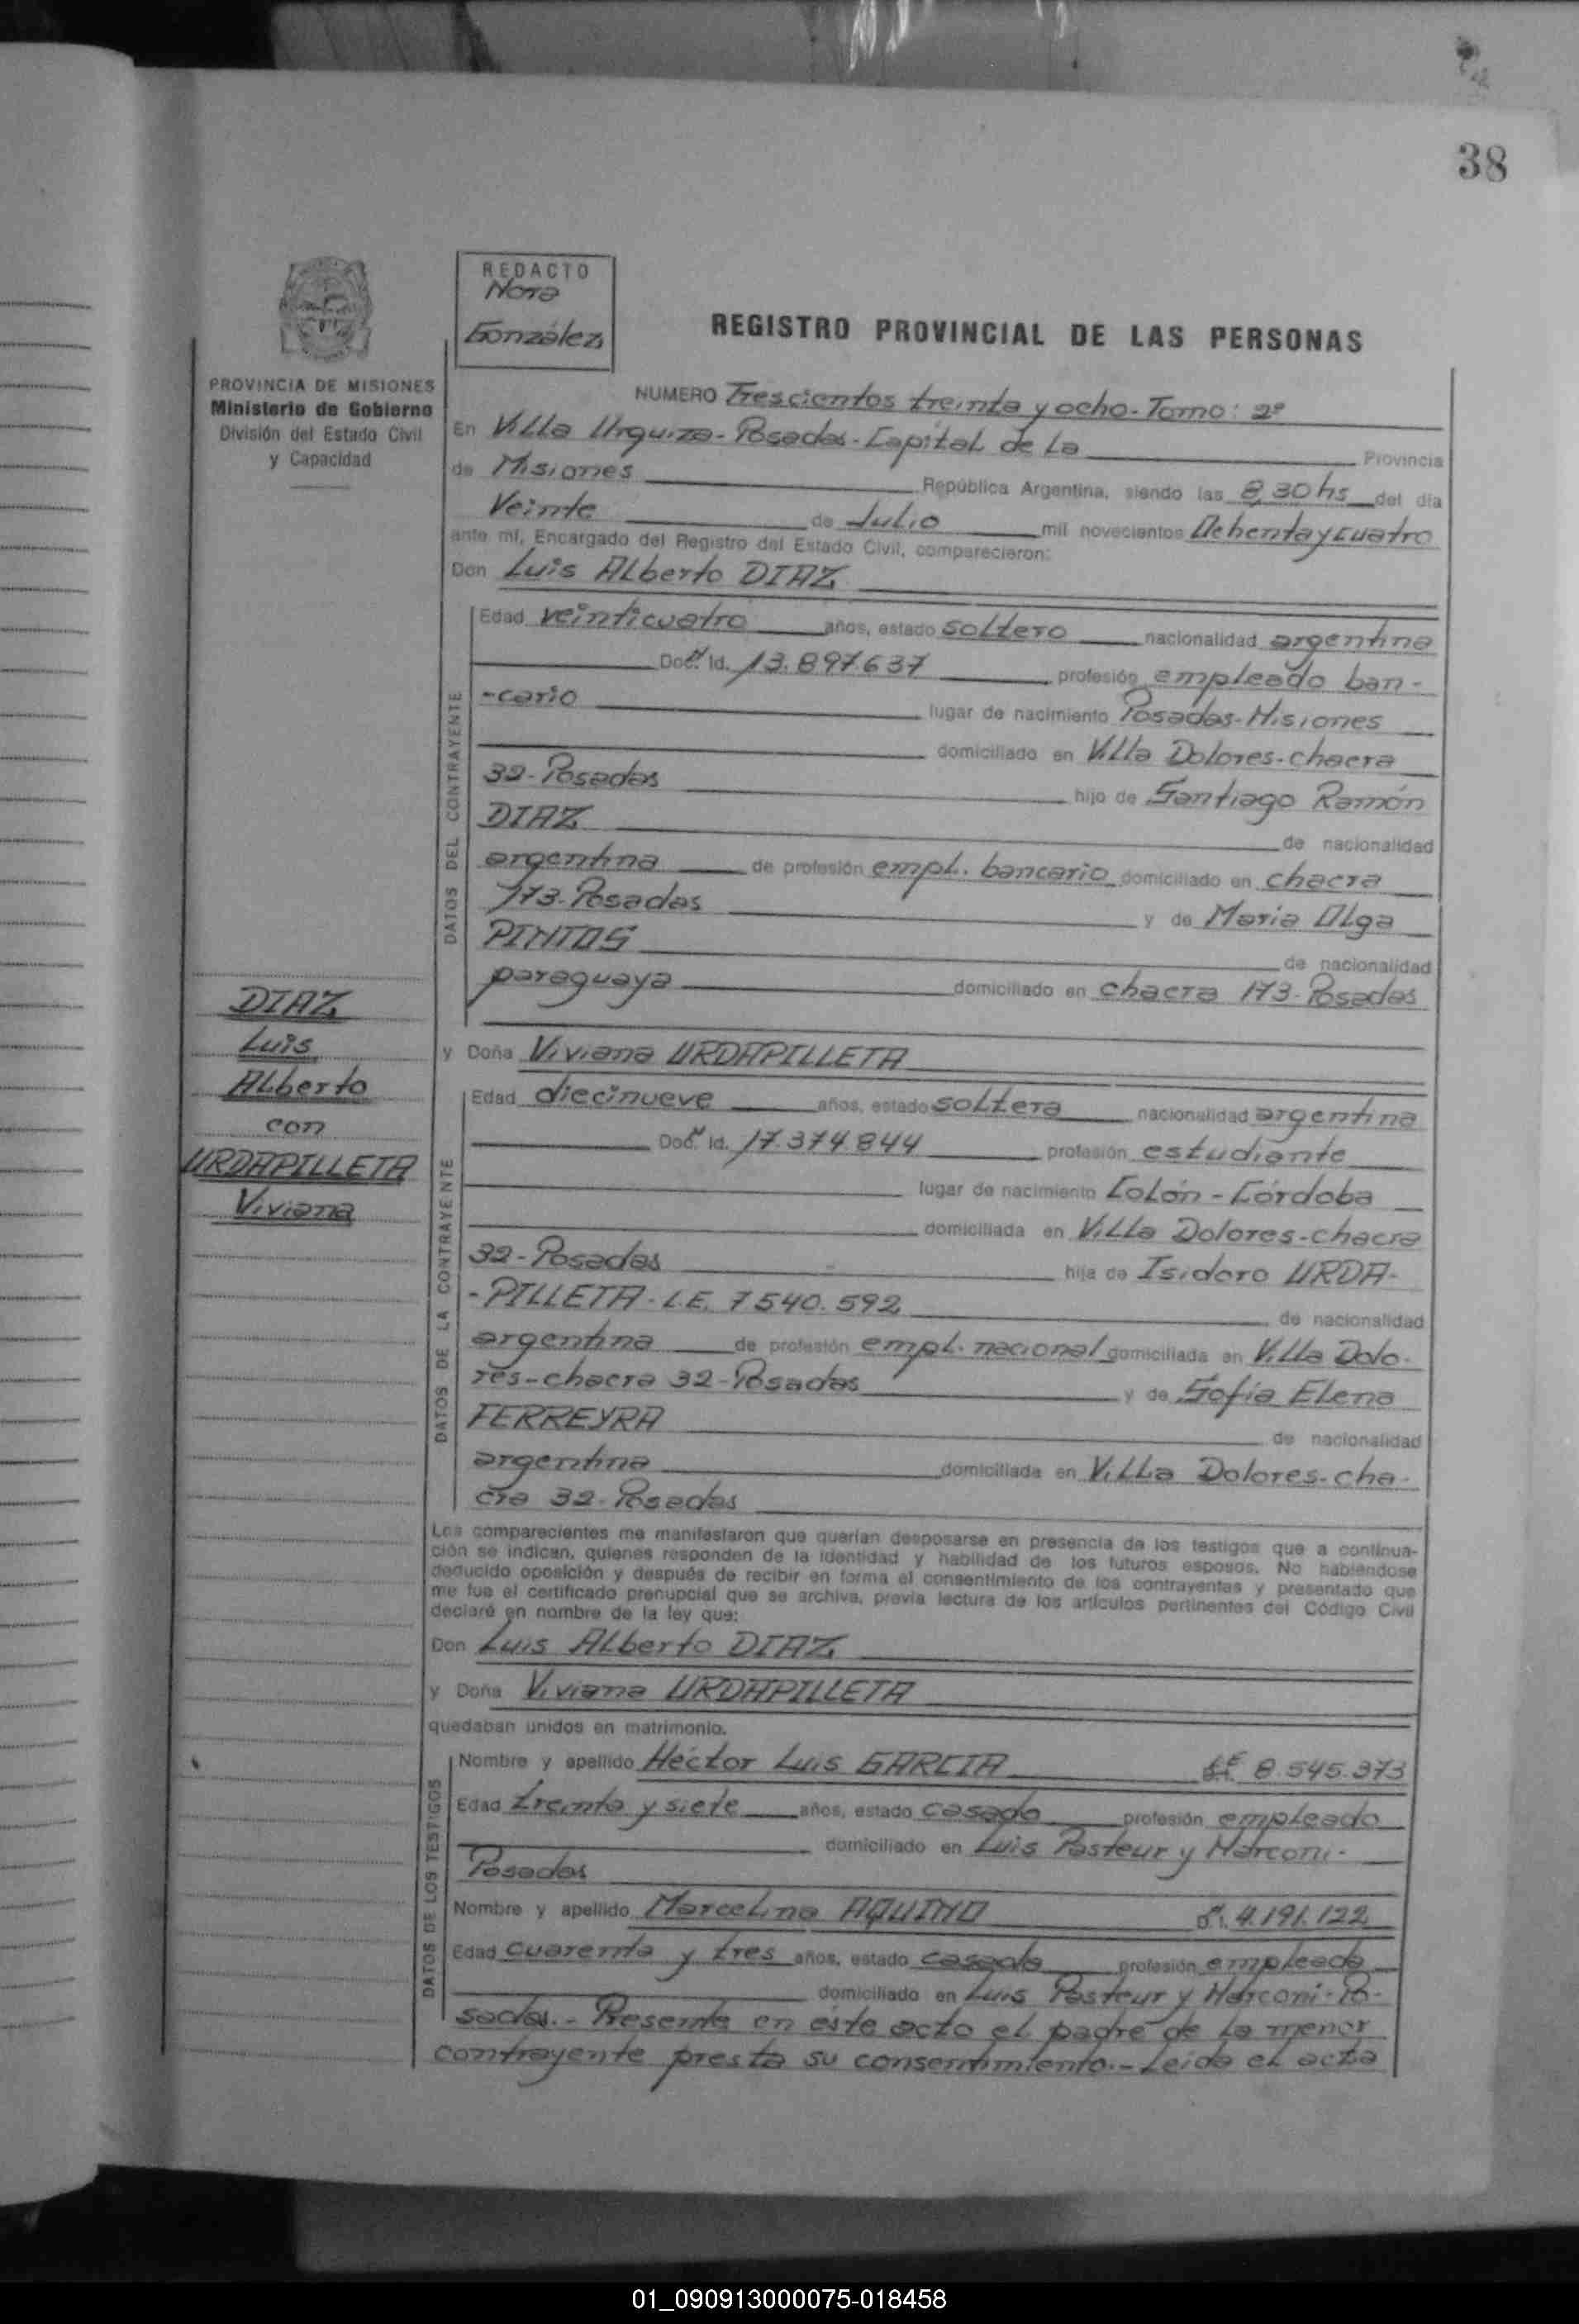 38
REDACTO
Nora
González
REGISTRO PROVINCIAL DE LAS PERSONAS
PROVINCIA DE MISIONES
Ministerio de Gobierno
División del Estado Civil
y Capacidad
NUMERO Trescientos treinta y ocho- Tomo: 2º
En Villa Urquiza- Posadas- Capital de La Provincia
de Misiones República Argentina, siendo las 8,30 hs del día
Veinte de Julio mil novecientos Ochenta y cuatro
ante mí, Encargado del Registro del Estado Civil, comparecieron:
Don Luis Alberto DIAZ
DATOS DEL CONTRAYENTE
Edad veinticuatro años, estado soltero nacionalidad argentina
Doc. Id. 13.897.637 profesión empleado ban-
-cario lugar de nacimiento Posadas-Misiones
domiciliado en Villa Dolores-chacra
32- Posadas hijo de Santiago Ramón
DIAZ de nacionalidad
argentina de profesión empl. bancario domiciliado en chacra
173- Posadas y de Maria Olga
PINTOS de nacionalidad
paraguaya domiciliado en chacra 173- Posadas
y Doña Viviana URDAPILLETA
DIAZ
Luis
Alberto
con
URDAPILLETA
Viviana
DATOS DE LA CONTRAYENTE
Edad diecinueve años, estado soltera nacionalidad argentina
Doc. Id. 17.374.844 profesión estudiante
lugar de nacimiento Colón - Córdoba
domiciliada en Villa Dolores-chacra
32- Posadas hija de Isidoro URDA-
-PILLETA- L.E. 7540.592 de nacionalidad
argentina de profesión empl. nacional domiciliada en Villa Dolo-
res-chacra 32- Posadas y de Sofía Elena
FERREYRA de nacionalidad
argentina domiciliada en Villa Dolores- cha-
cra 32- Posadas
Los comparecientes me manifestaron que querían desposarse en presencia de los testigos que a continua-
ción se indican, quienes responden de la identidad y habilidad de los futuros esposos. No habiéndose
deducido oposición y después de recibir en forma el consentimiento de los contrayentes y presentado que
me fue el certificado prenupcial que se archiva, previa lectura de los artículos pertinentes del Código Civil
declaré en nombre de la ley que:
Don Luis Alberto DIAZ
y Doña Viviana URDAPILLETA
quedaban unidos en matrimonio.
DATOS DE LOS TESTIGOS
Nombre y apellido Héctor Luis GARCIA LE 8.545.373
Edad treinta y siete años, estado casado profesión empleado
domiciliado en Luis Pasteur y Marconi-
Posadas
Nombre y apellido Marcelina AQUINO D.I. 4.191.122
Edad cuarenta y tres años, estado casada profesión empleada
domiciliado en Luis Pasteur y Marconi- Po-
sadas.- Presente en éste acto el padre de la menor
contrayente presta su consentimiento.- Leida el acta
01_090913000075-018458